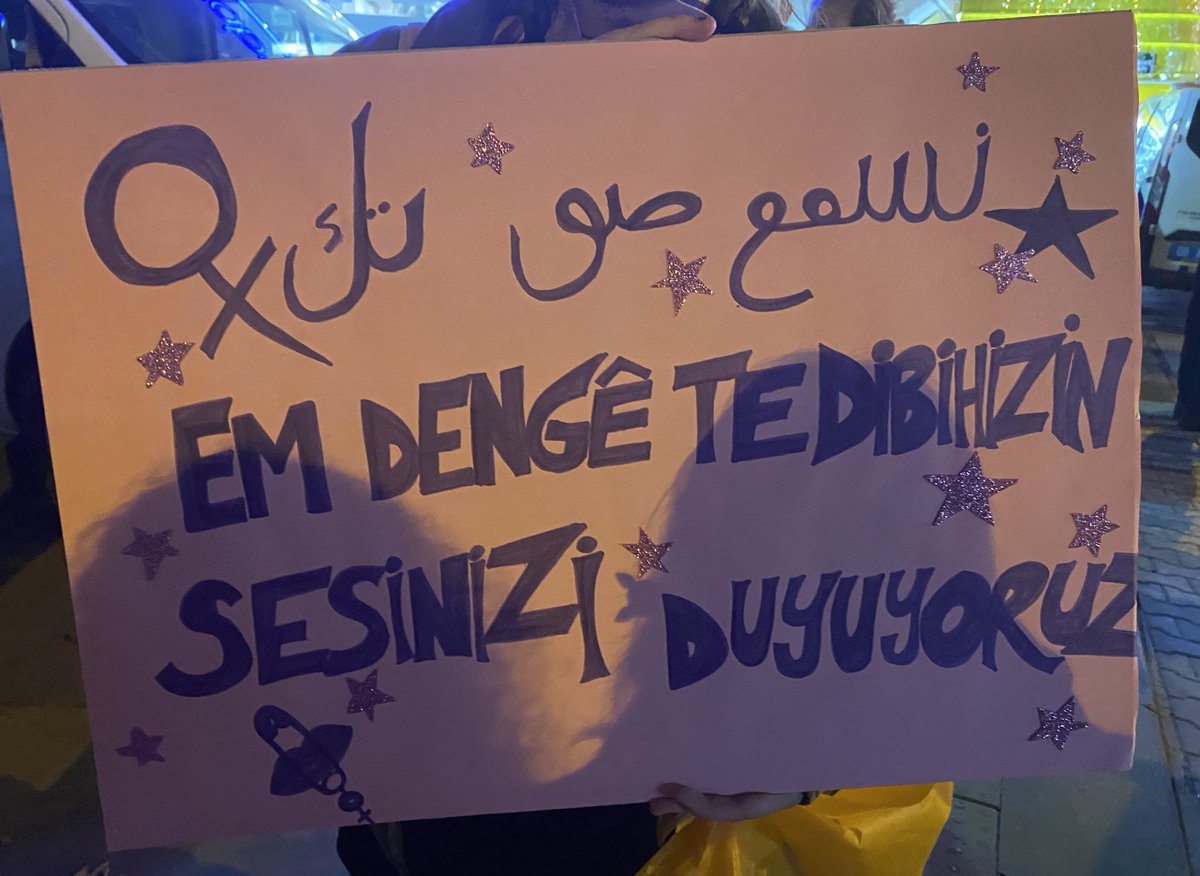 نسمع صو تك
EM DENGÊ TE DİBİHİZİN
SESİNİZİ DUYUYORUZ